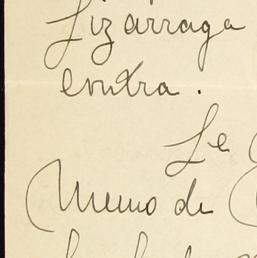 Lizárraga
contra.
Le
Memo de